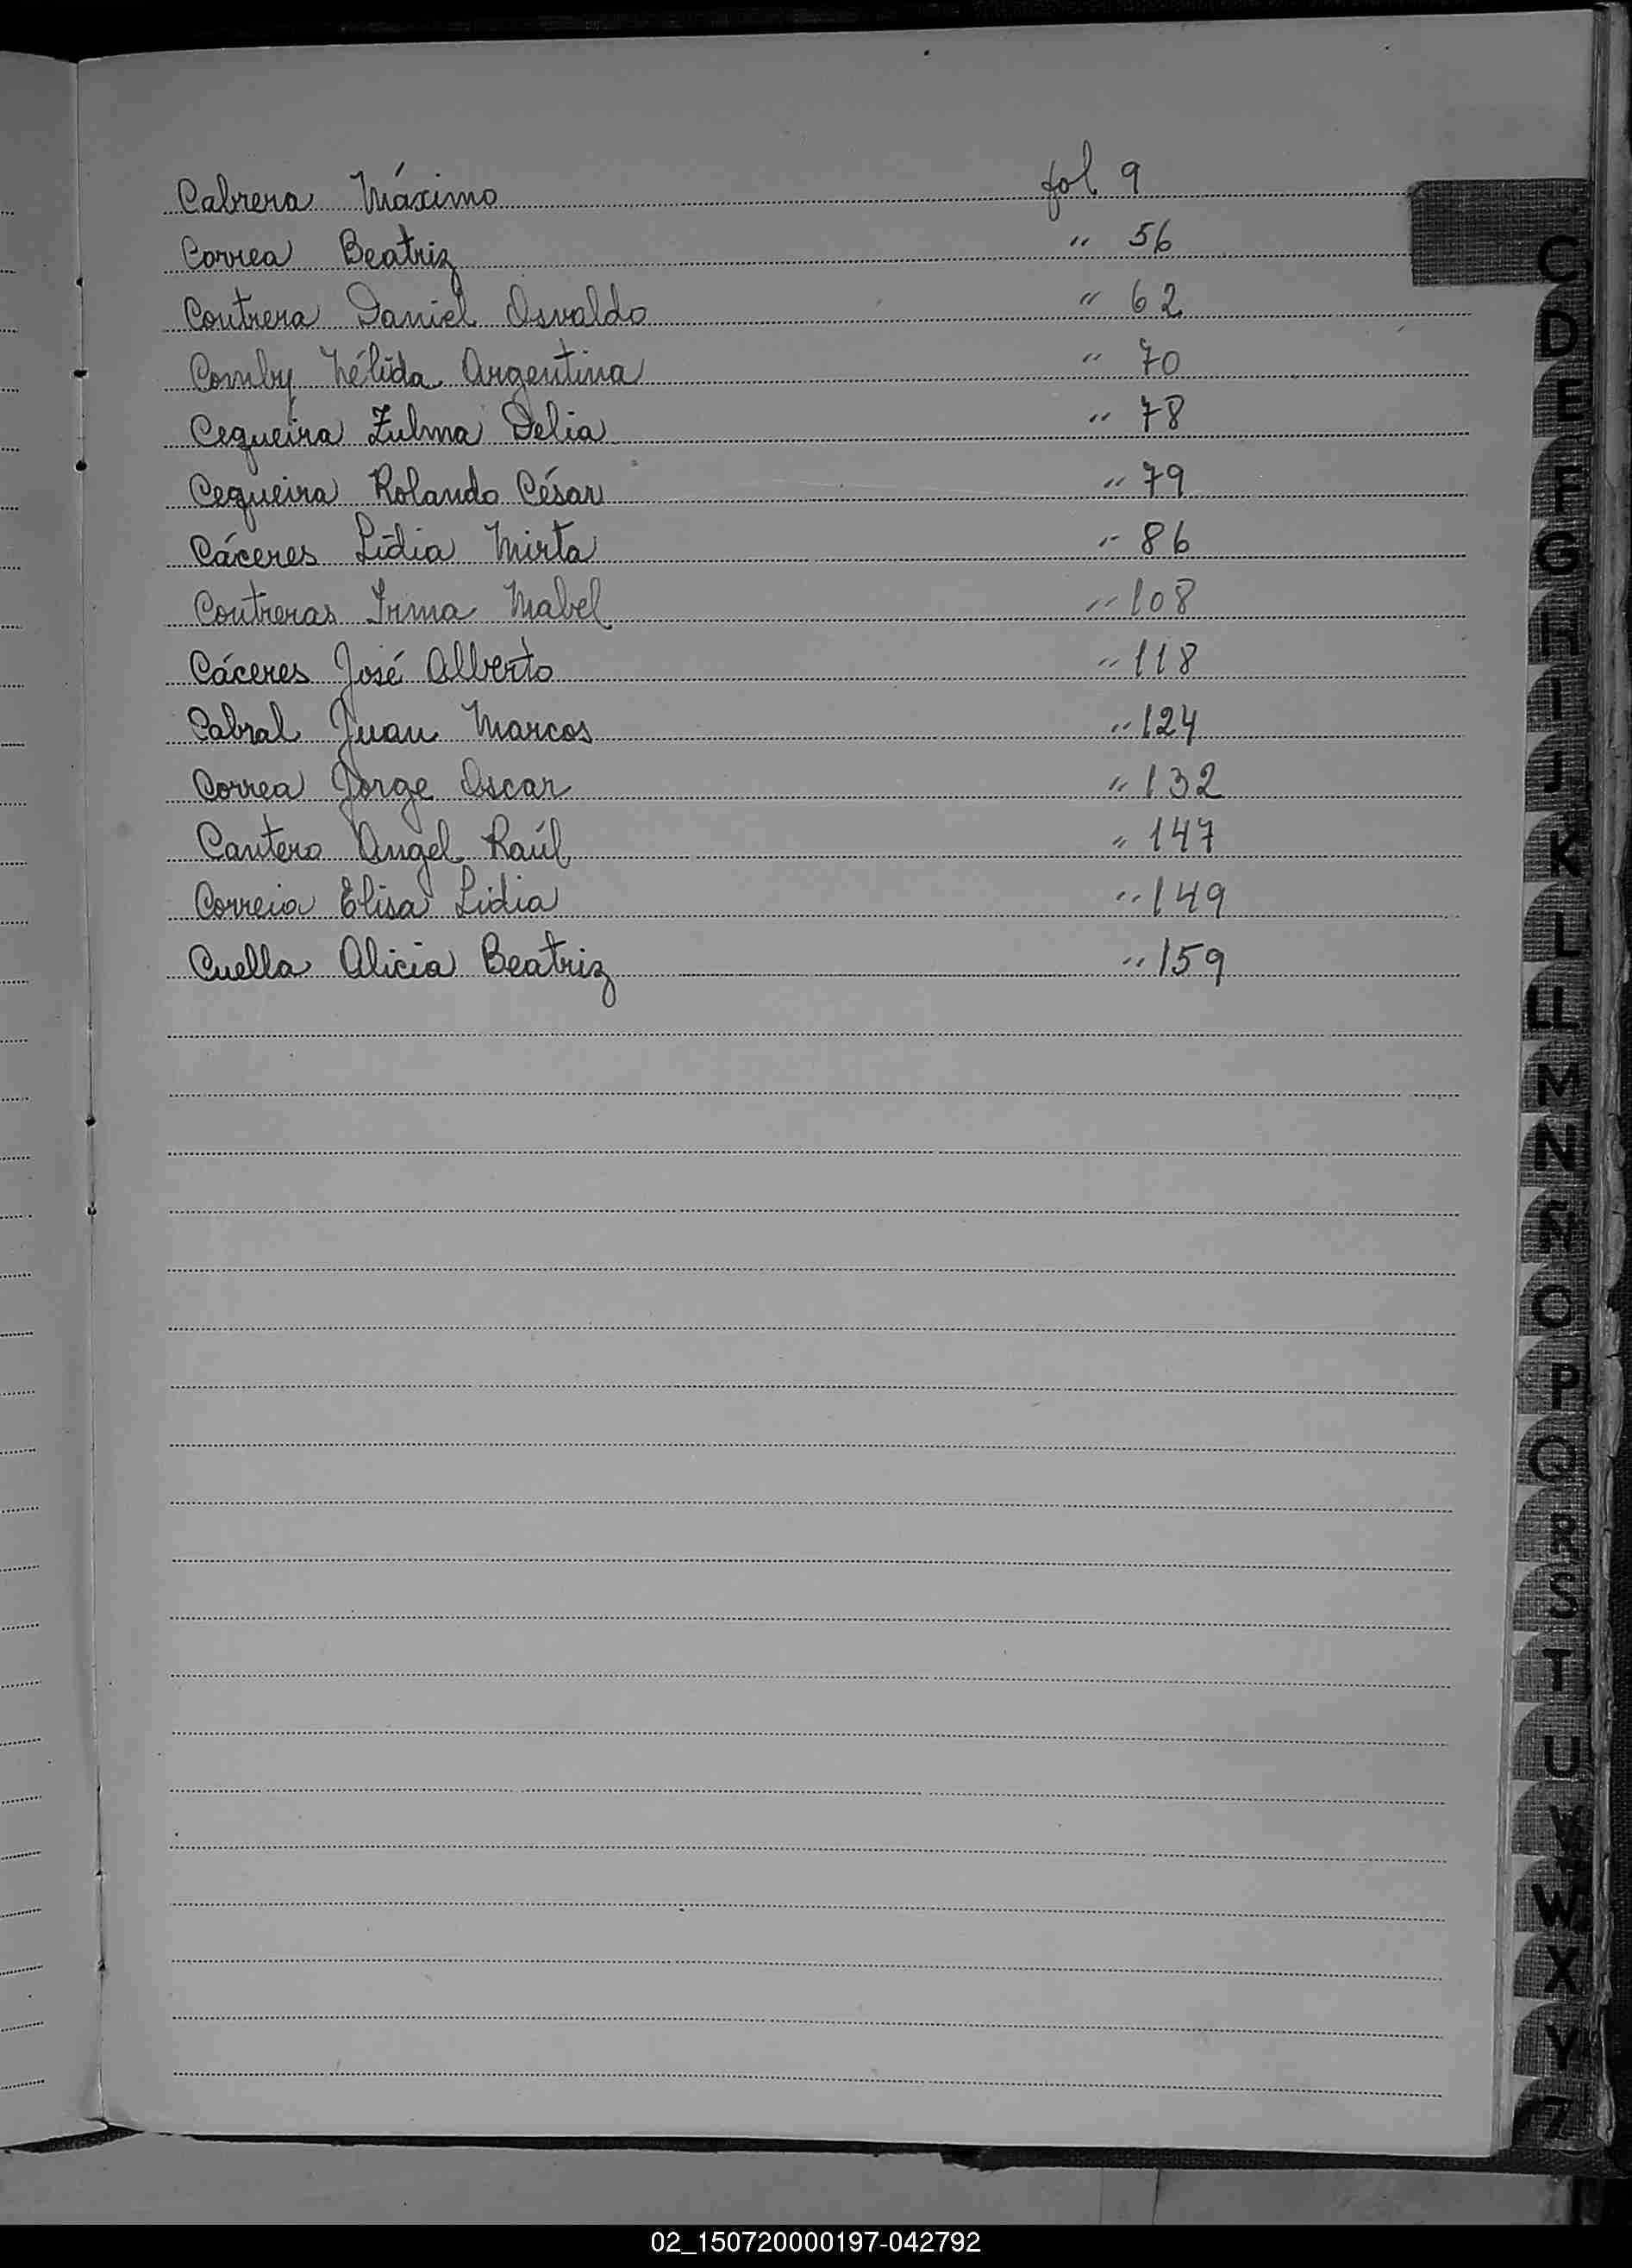 Cabrera Máximo fol 9
Correa Beatriz " 56
Contrera Daniel Osvaldo " 62
Comby Nélida Argentina " 70
Cequeira Zulma Delia " 78
Cequeira Rolando César " 79
Cáceres Lidia Mirta " 86
Contreras Irma Mabel " 108
Cáceres José Alberto " 118
Cabral Juan Marcos " 124
Correa Jorge Oscar " 132
Cantero Angel Raúl " 147
Correia Elisa Lidia " 149
Cuella Alicia Beatriz " 159
C
D
E
F
G
H
I
J
K
L
LL
M
N
Ñ
O
P
Q
R
S
T
U
V
W
X
Y
Z
02_150720000197-042792